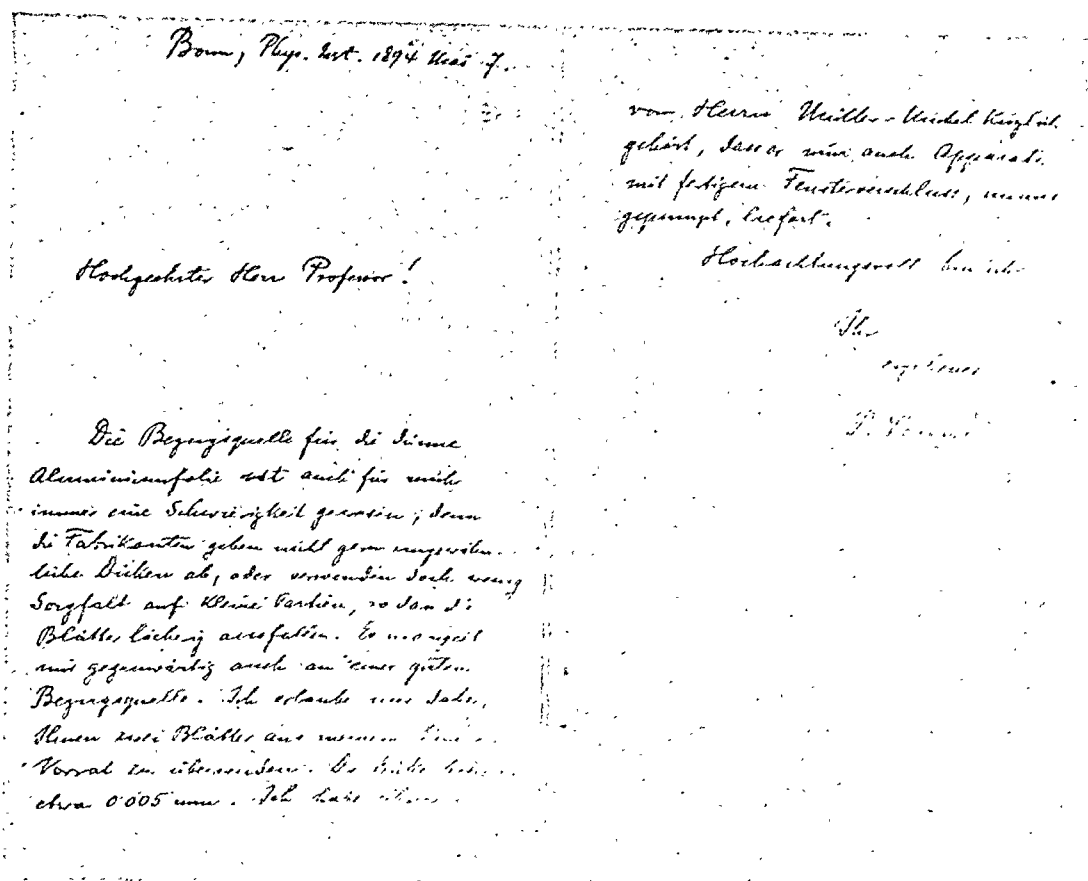 Bonn, Phys. Inst. 1894 Mai 7.
Hochgeehrter Herr Professor!
Die Bezugsquelle für die dünne
Aluminiumfolie ist auch für mich
immer eine Schwierigkeit gewesen; denn
die Fabrikanten geben nicht gern ungewöhn-
liche Dicken ab, oder verwenden doch wenig
Sorgfalt auf kleine Partien, so dass die
Blätter löcherig ausfallen. Es mangelt
mir gegenwärtig auch an einer guten
Bezugsquelle. Ich erlaube mir daher,
Ihnen zwei Blätter aus meinem
Vorrat zu übersenden. Die Dicke
etwa 0.005 mm. Ich habe
von Herrn Müller-Unkel kürzlich
gehört, dass er nun auch Apparate
mit fertigem Fensterverschluss,
gepumpt, liefert.
Hochachtungsvoll bin ich
Ihr
ergebener
P. Lenard